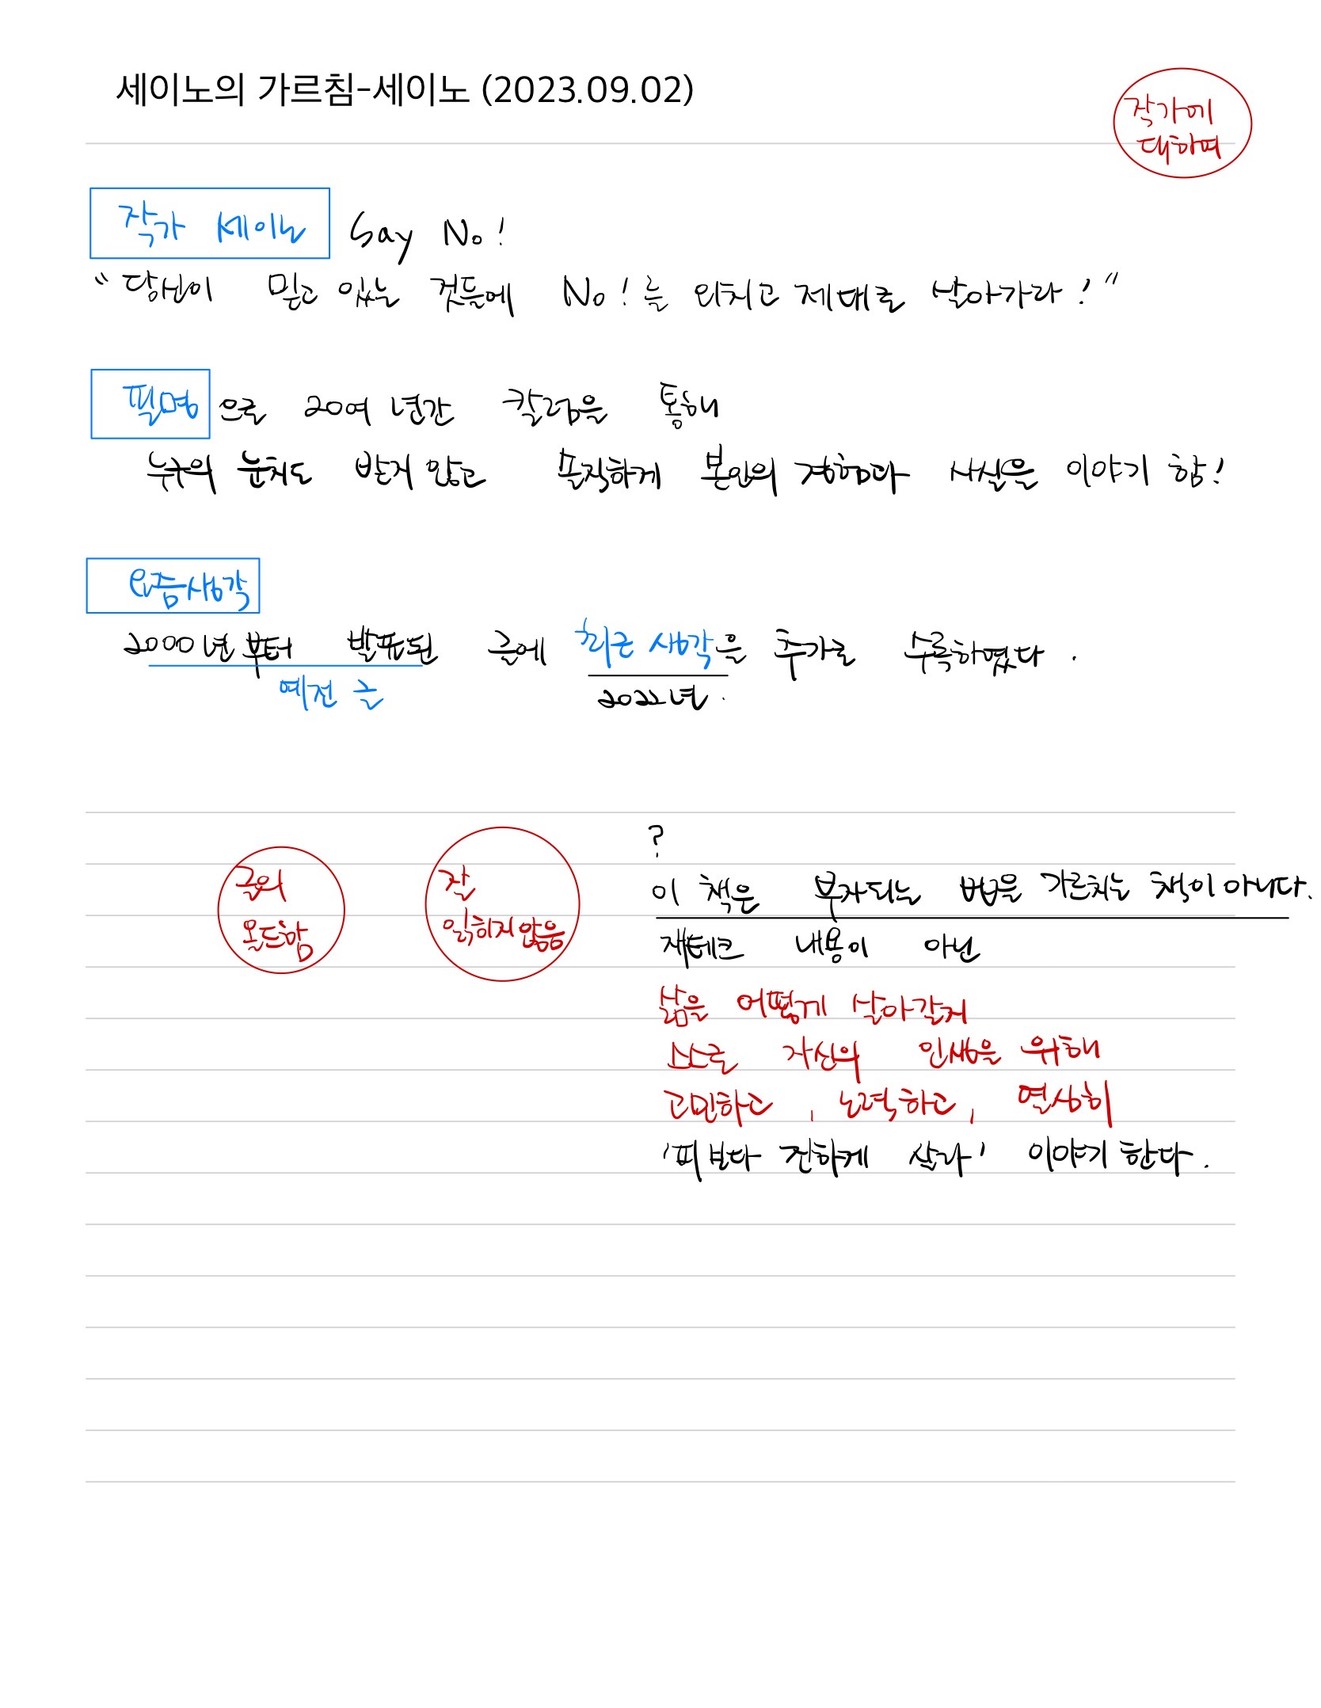 세이노의 가르침-세이노 (2023.09.02)
작가에
대하여
작가 세이노 Say No!
"당신이 믿고 있는 것들에 No!를 외치고 제대로 살아가라!"
필명으로 20여 년간 칼럼을 통해
누구의 눈치도 받지 않고 솔직하게 본인의 경험과 사실을 이야기 함!
요즘생각
2000년 부터 발표된 글에 최근 생각을 추가로 수록하였다.
예전 글
2022년.
글의
올드함
잘
읽히지 않음
?
이 책은 부자되는 법을 가르치는 책이 아니다.
재테크 내용이 아닌
삶을 어떻게 살아갈지
스스로 자신의 인생을 위해
고민하고, 노력하고, 열심히
'피보다 진하게 살라' 이야기 한다.